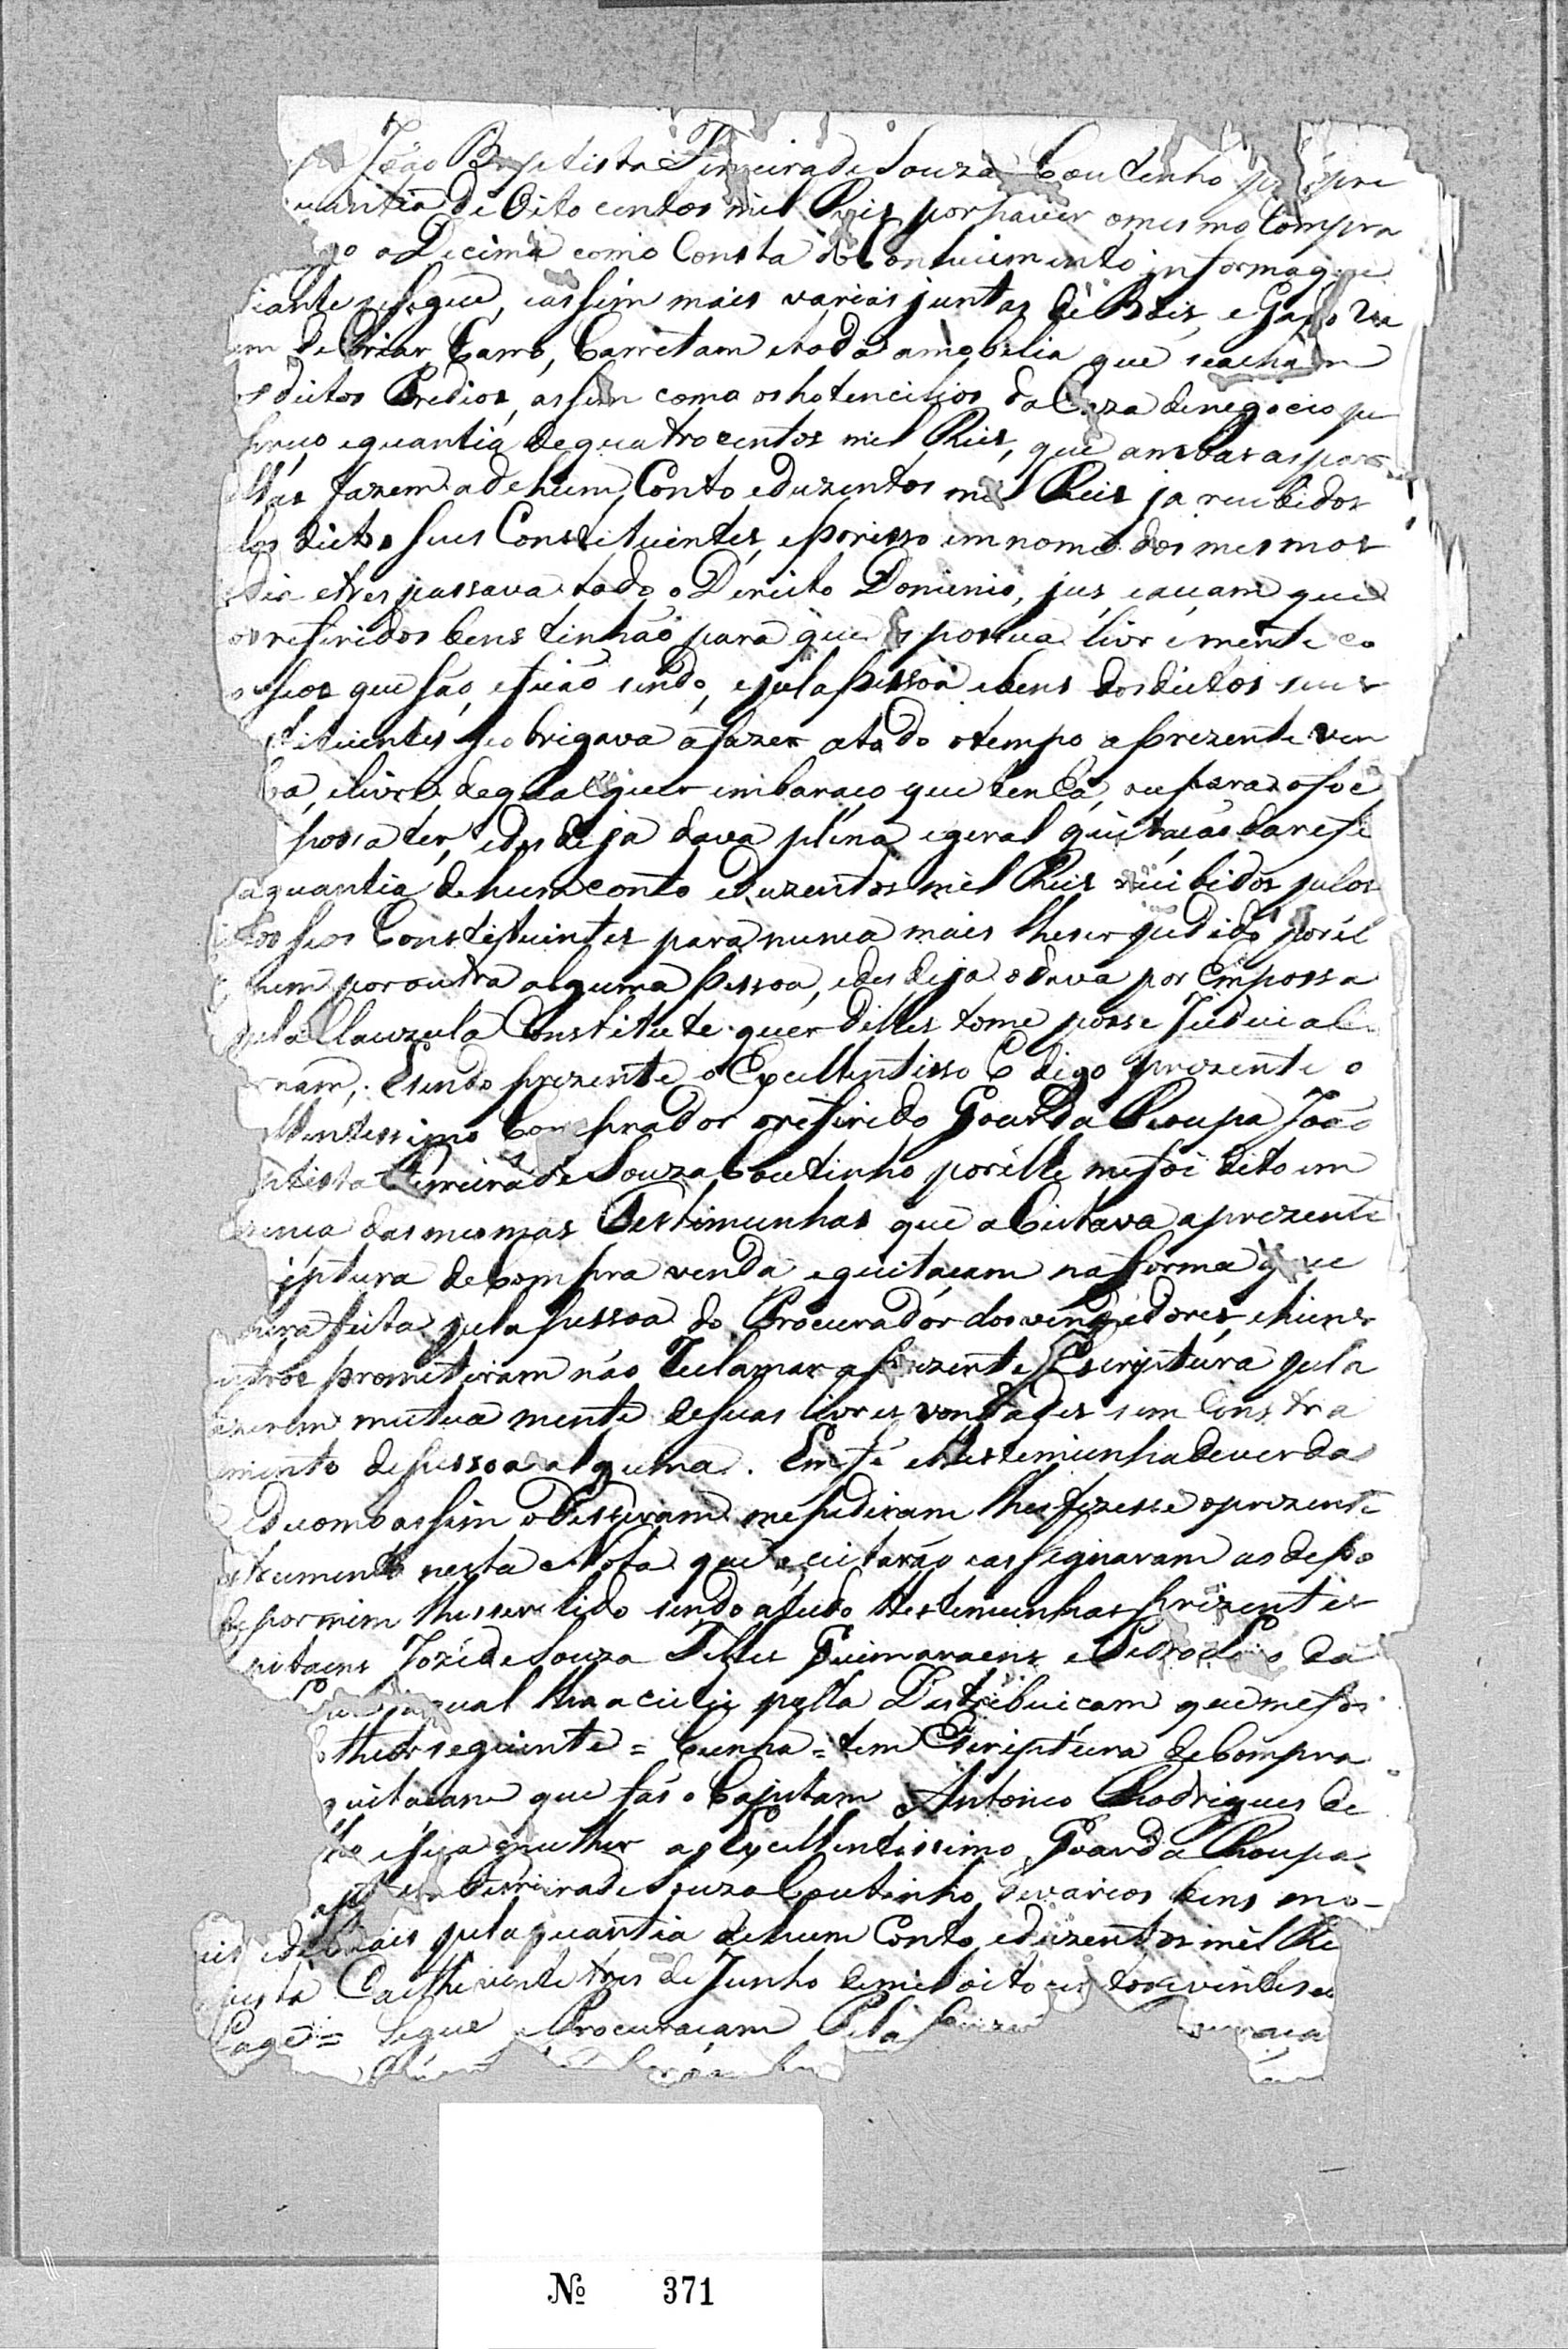 João Baptista Ferreira de Souza Coutinho
uantia de Oito centos mil Reis por haver o mesmo Compra
go a Decima como Consta do Conhecimento informa que
iante se segue, e assim mais varias juntas de Bois, e Gado
em de Criar, Carro, Carretam e toda a mobelia que se acha em
ditos Predios, assim como os hotencilios da Caza de negocio
preço e quantia de quatro centos mil Reis, que ambas as par
llas fazem a de hum Conto e duzentos mil Reis ja recebidos
los dictos seus Constituintes, e por isso em nome dos mesmos
dia e tres passava todo o Direito Dominio, jus, e acçam que
os referidos bens tinhão para que os possua livremente co
seos que são, e ficão sendo, e pela pessoa e bens dos dictos seus
tituintes se obrigava a fazer a todo o tempo a prezente ven
ba, e livre de qualquer imbaraço que tenha, ou para o foe
possa ter, e desde ja dava plena e geral quitacão da refe
a quantia de hum conto e Duzentos mil Reis recibidos pelos
tos seos Constituintes para nunca mais lhe ser pedido por el
nem por outra alguma pessoa, e desde ja o dava por Empossa
pela Clauzula Constitute quer delles tome posse Judicial
nam; E sendo prezente o Excellentisso C digo prezente o
llentissimo Comprador o referido Goarda Roupa João
ptista Ferreira de Souza Coutinho por elle me foi dito em
zença das mesmas Testimunhas que aceitava a prezente
iptura de Compra venda e quitaçam na forma que
hera feita pela pessoa do Procurador dos vendedores, e huns
utros prometeram não Reclamar a prezente Escriptura pela
fazerem mutua mente de suas livres vontades sem Constra
imento de pessoa alguma. Em fé e testemunha de verda
E de como assim o disseram me pediram lhes fizesse o prezente
strumento nesta Nota que aceitarão e assignaram as depo
de por mim lhes ser lido sendo a tudo testemunhas prezentes
pitaens Jozé de Souza Telles Guimaraens e Pedro da
qual lha aceitei pella Destribuicam que me foi
theor seguinte = Cunha = tem Escriptura de Compra
quitacam que fás o Capitam Antonio Rodrigues de
lho e sua mulher ao Excellentissimo Goarda Roupa
Ferreira de Souza Coutinho, de varios bens mo-
eis e de mais pela quantia de hum Conto e duzentos mil Re
Caethe vinte tres de Junho de mil oito centos e vinte
Lage = Segue a Procuracam